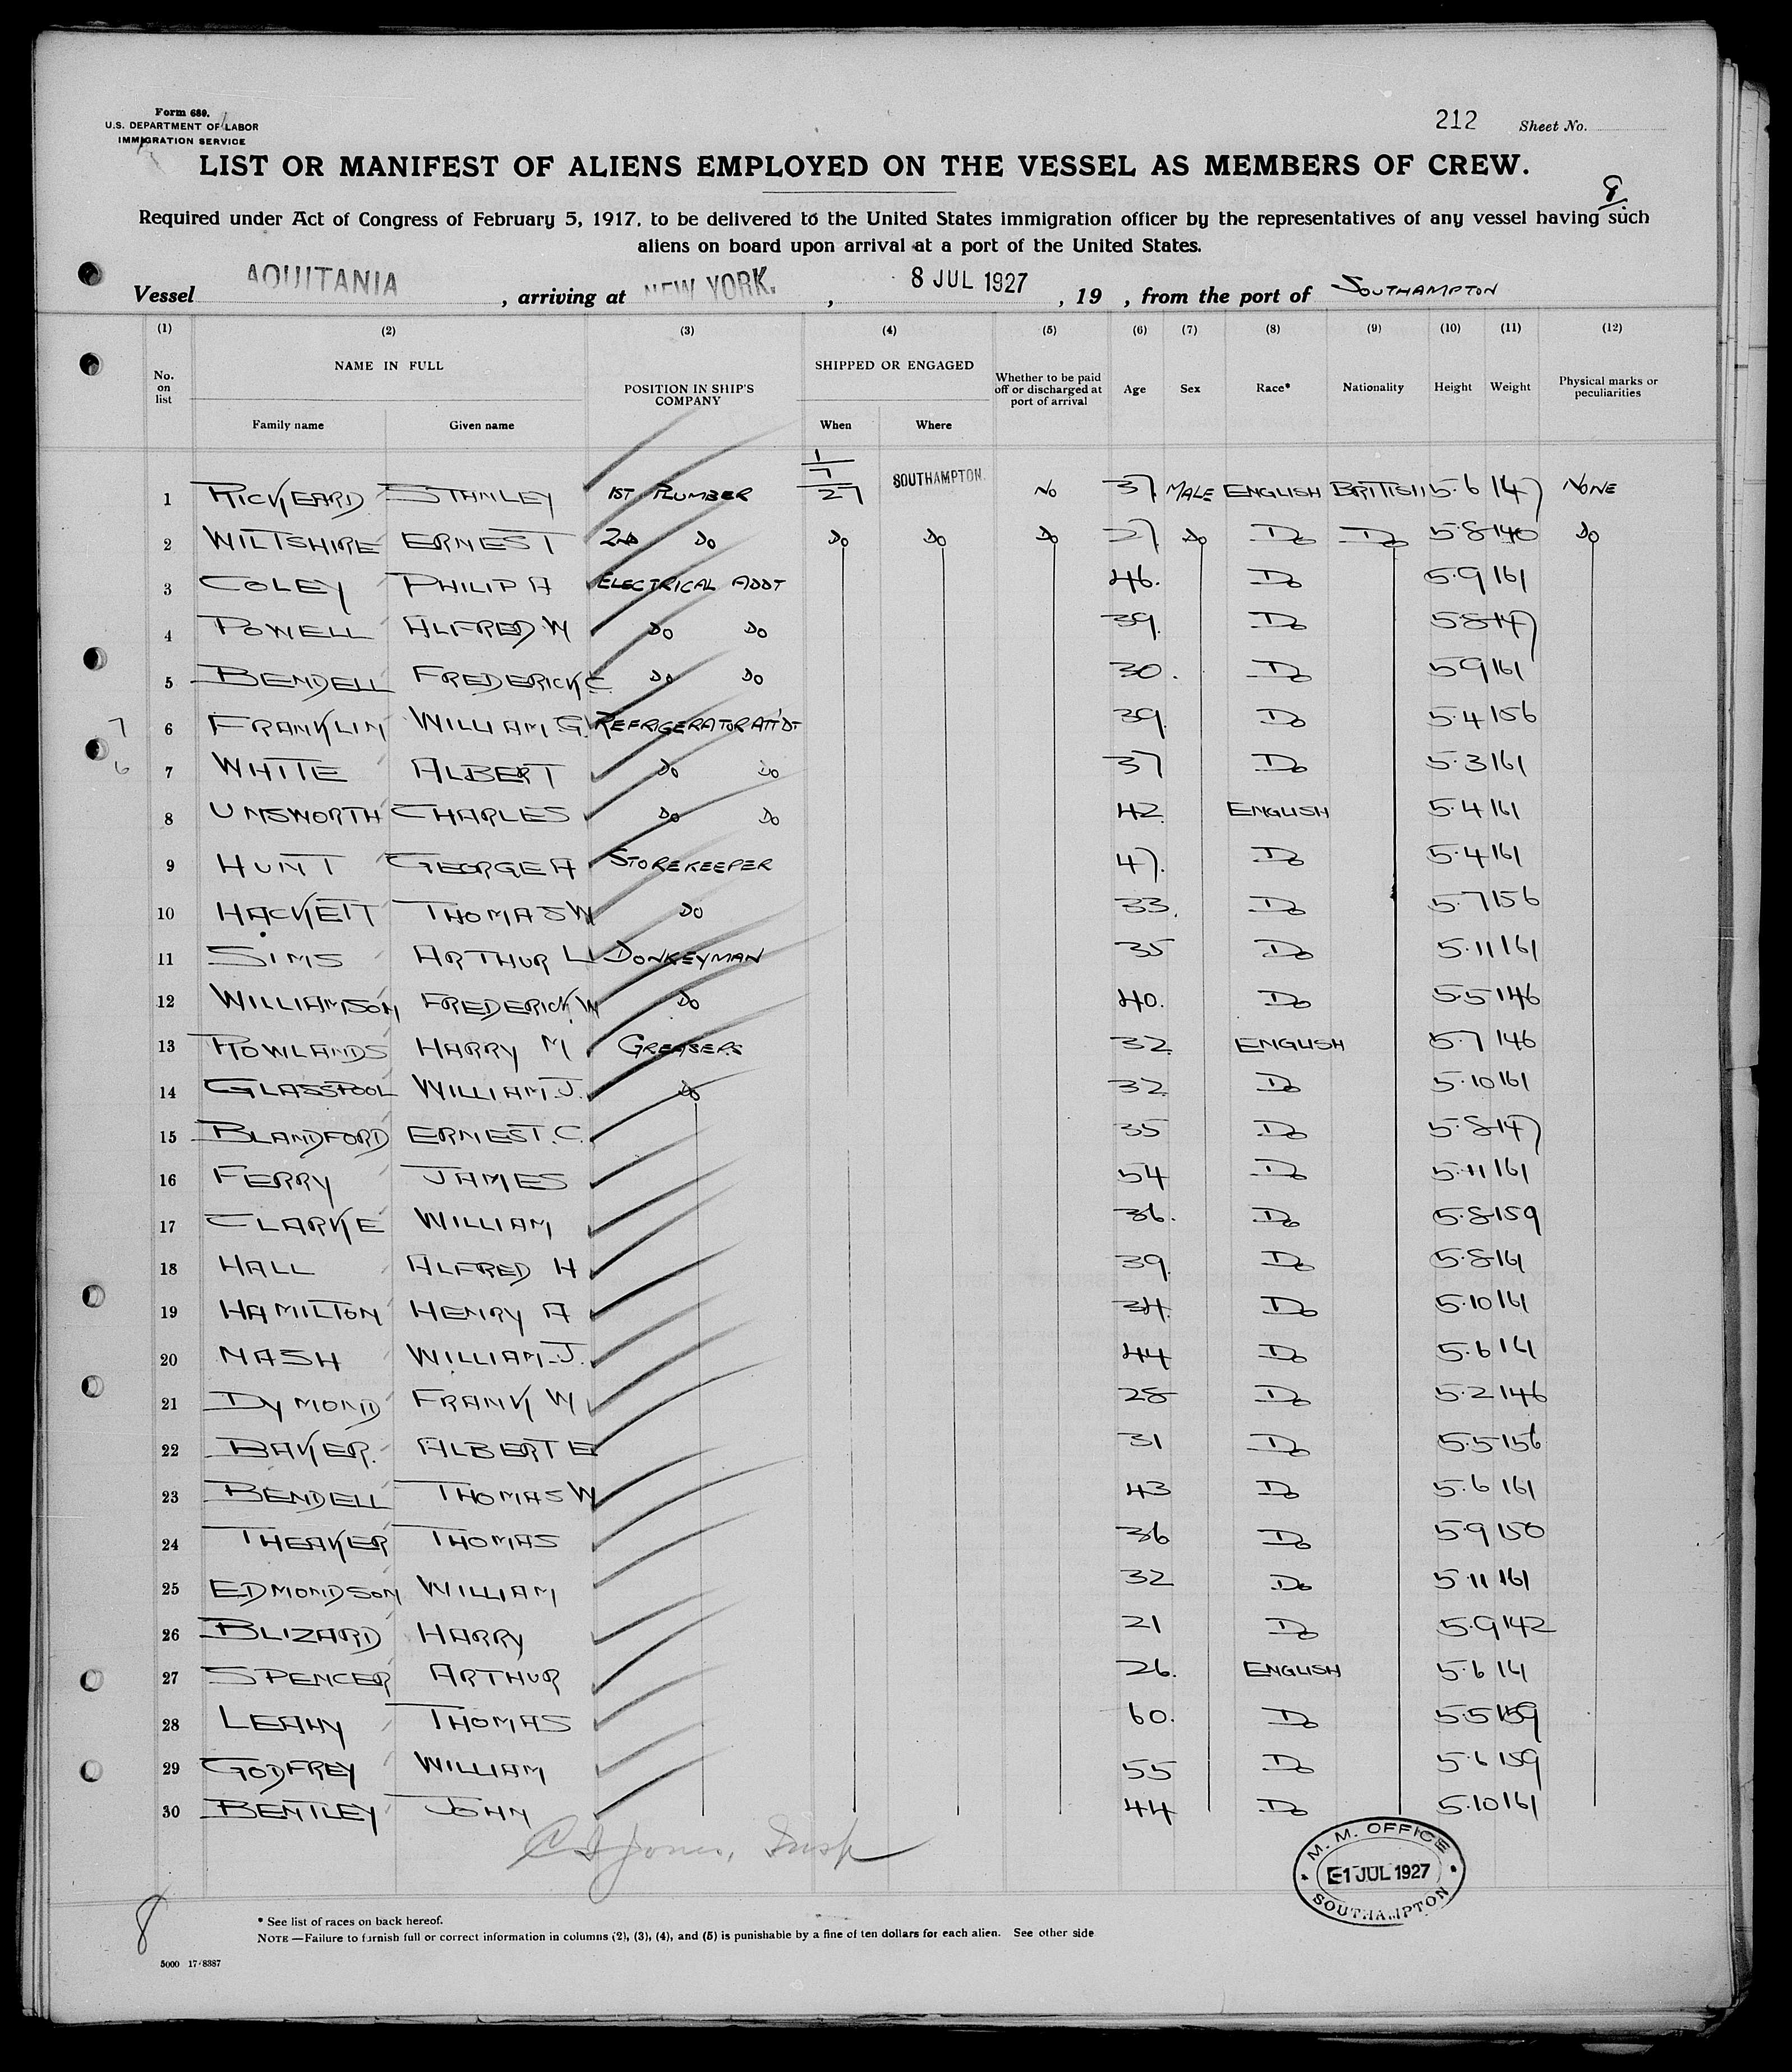 Form 680.
U.S. DEPARTMENT OF LABOR
IMMIGRATION SERVICE
212 Sheet No.
LIST OR MANIFEST OF ALIENS EMPLOYED ON THE VESSEL AS MEMBERS OF CREW.
8
Required under Act of Congress of February 5, 1917, to be delivered to the United States immigration officer by the representatives of any vessel having such
aliens on board upon arrival at a port of the United States.
Vessel AQUITANIA, arriving at NEW YORK., 8 JUL 1927, 19 , from the port of SOUTHAMPTON
(1) (2) (3) (4) (5) (6) (7) (8) (9) (10) (11) (12)
No. on list NAME IN FULL Family name Given name POSITION IN SHIP'S COMPANY SHIPPED OR ENGAGED When Where Whether to be paid off or discharged at port of arrival Age Sex Race* Nationality Height Weight Physical marks or peculiarities
1 RICKEARD STANLEY 1ST PLUMBER 1/7/27 SOUTHAMPTON. No 37 MALE ENGLISH BRITISH 5.6 147 NONE
2 WILTSHIRE ERNEST 2nd Do Do Do Do 27 Do Do Do 5.8 140 Do
3 COLEY PHILIP A ELECTRICAL ADDT 46. Do 5.9 161
4 POWELL ALFRED W Do Do 39. Do 5.8 147
5 BENDELL FREDERICK C Do Do 30. Do 5.9 161
6 FRANKLIN WILLIAM G. REFRIGERATOR ATT'DT 39. Do 5.4 156
7 WHITE ALBERT Do Do 37 Do 5.3 161
8 UNSWORTH CHARLES Do Do 42. ENGLISH 5.4 161
9 HUNT GEORGE A STOREKEEPER 47. Do 5.4 161
10 HACKETT THOMAS W Do 33. Do 5.7 156
11 SIMS ARTHUR L DONKEYMAN 35 Do 5.11 161
12 WILLIAMSON FREDERICK W Do 40. Do 5.5 146
13 ROWLANDS HARRY M GREASERS 32. ENGLISH 5.7 146
14 GLASSPOOL WILLIAM J. Do 32. Do 5.10 161
15 BLANDFORD ERNEST. C. 35 Do 5.8 147
16 FERRY JAMES 54 Do 5.11 161
17 CLARKE WILLIAM 36. Do 5.8 159
18 HALL ALFRED H 39. Do 5.8 161
19 HAMILTON HENRY A 34. Do 5.10 161
20 NASH WILLIAM J. 44 Do 5.6 141
21 DYMOND FRANK W 28 Do 5.2 146
22 BAKER. ALBERT E 31 Do 5.5 156
23 BENDELL THOMAS W 43 Do 5.6 161
24 THEAKER THOMAS 36 Do 5.9 150
25 EDMONDSON WILLIAM 32 Do 5.11 161
26 BLIZARD HARRY 21 Do 5.9 142
27 SPENCER ARTHUR 26. ENGLISH 5.6 141
28 LEAHY THOMAS 60. Do 5.5 159
29 GODFREY WILLIAM 55 Do 5.6 159
30 BENTLEY JOHN 44 Do 5.10 161
Jones, Insp
M. M. OFFICE
E-1 JUL 1927
SOUTHAMPTON
8
* See list of races on back hereof.
NOTE—Failure to furnish full or correct information in columns (2), (3), (4), and (5) is punishable by a fine of ten dollars for each alien. See other side
5000 17-8387